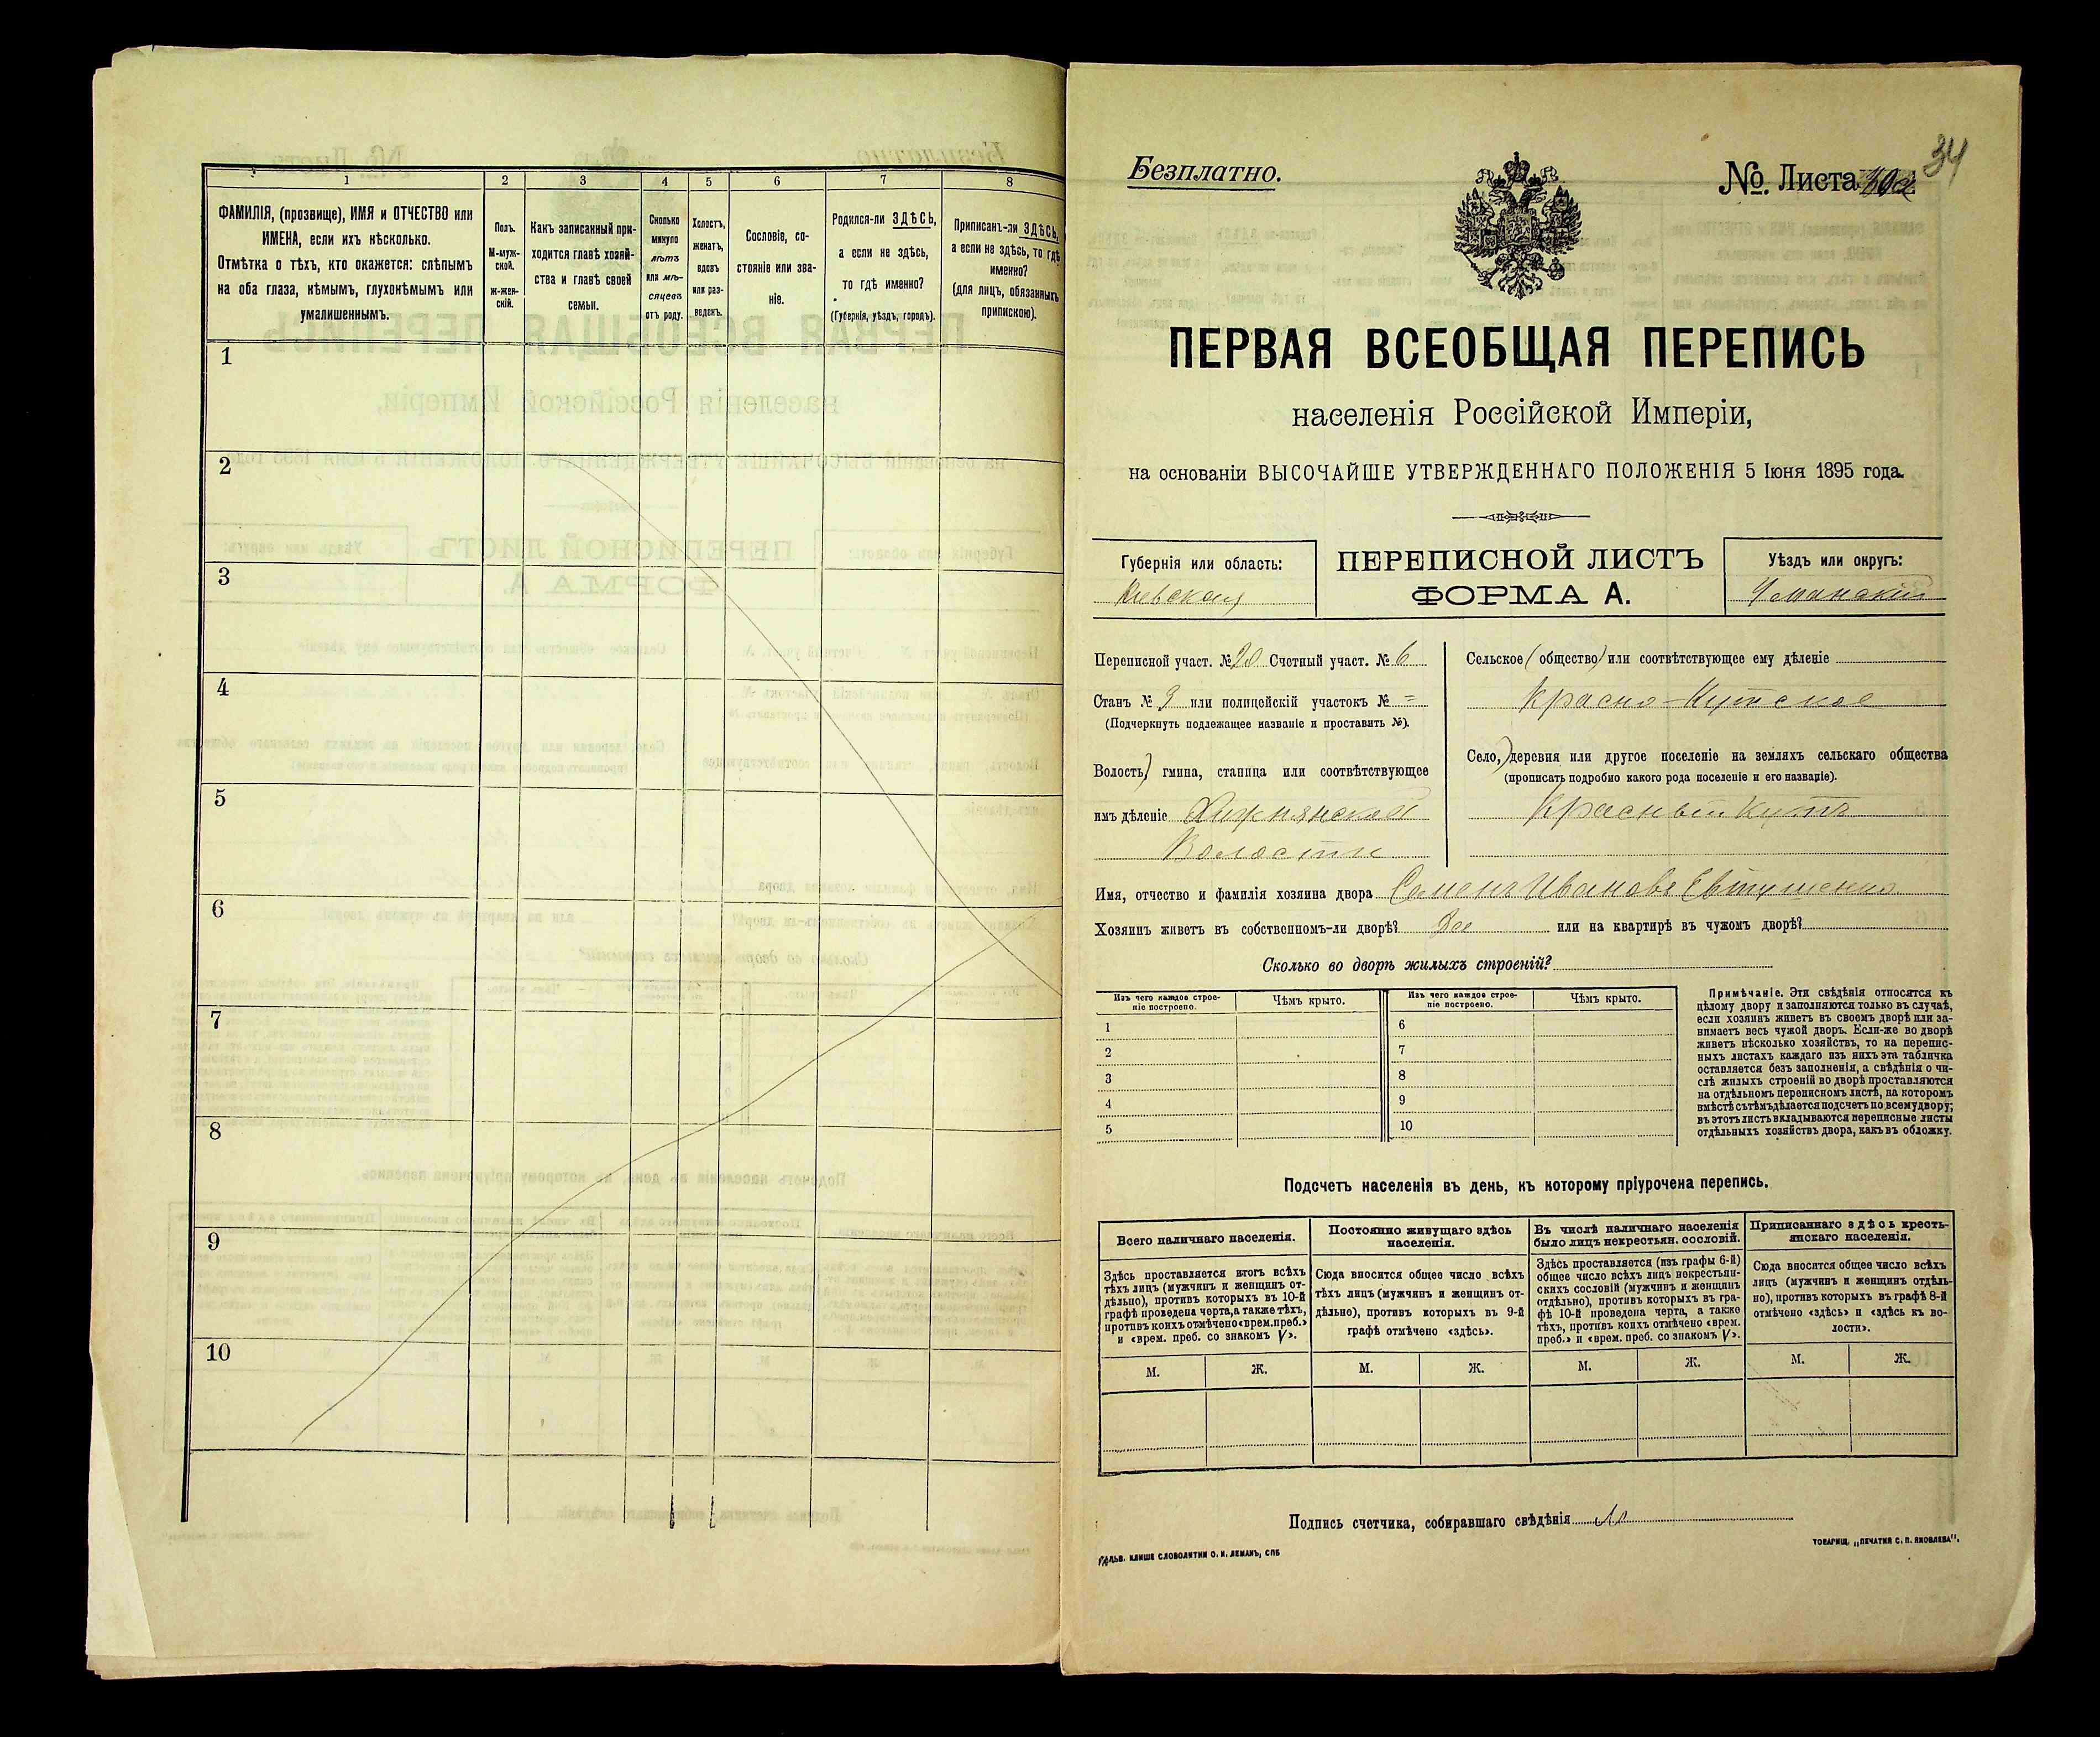 1 2 3 4 5 6 7 8
ФАМИЛІЯ, (прозвище), ИМЯ и ОТЧЕСТВО или
ИМЕНА, если ихъ нѣсколько.
Отмѣтка о тѣхъ, кто окажется: слѣпымъ
на оба глаза, нѣмымъ, глухонѣмымъ или
умалишеннымъ.
Полъ.
М-муж-
ской.
ж-жен-
скій.
Какъ записанный при-
ходится главѣ хозяй-
ства и главѣ своей
семьи.
Сколько
минуло
лѣтъ
или мѣ-
сяцевъ
отъ роду.
Холостъ,
женатъ,
вдовъ
или раз-
веденъ.
Сословіе, со-
стояніе или зва-
ніе.
Родился-ли ЗДѢСЬ,
а если не здѣсь,
то гдѣ именно?
(Губернія, уѣздъ, городъ).
Приписанъ-ли ЗДѢСЬ,
а если не здѣсь, то гдѣ
именно?
(для лицъ, обязанныхъ
припискою).
1
2
3
4
5
6
7
8
9
10
34
Безплатно.
№. Листа
ПЕРВАЯ ВСЕОБЩАЯ ПЕРЕПИСЬ
населенія Россійской Имперіи,
на основаніи ВЫСОЧАЙШЕ УТВЕРЖДЕННАГО ПОЛОЖЕНІЯ 5 Іюня 1895 года.
Губернія или область:
Кіевская
ПЕРЕПИСНОЙ ЛИСТЪ
ФОРМА А.
Уѣздъ или округъ:
Уманскій
Переписной участ. № 20 Счетный участ. № 6
Станъ № 3 или полицейскій участокъ № =
(Подчеркнуть подлежащее названіе и проставить №).
Волость) гмина, станица или соотвѣтствующее
имъ дѣленіе Хижнянской
Волости
Сельское (общество) или соотвѣтствующее ему дѣленіе
Красно-Кутское
Село,) деревня или другое поселеніе на земляхъ сельскаго общества
(прописать подробно какого рода поселеніе и его названіе).
Красный Кутъ
Имя, отчество и фамилія хозяина двора Семенъ Ивановъ Евтушенко
Хозяинъ живетъ въ собственномъ-ли дворѣ? или на квартирѣ въ чужомъ дворѣ?
Сколько во дворѣ жилыхъ строеній?
Изъ чего каждое строе-
ніе построено.
Чѣмъ крыто.
Изъ чего каждое строе-
ніе построено.
Чѣмъ крыто.
1
2
3
4
5
6
7
8
9
10
Примѣчаніе. Эти свѣдѣнія относятся къ
цѣлому двору и заполняются только въ случаѣ,
если хозяинъ живетъ въ своемъ дворѣ или за-
нимаетъ весь чужой дворъ. Если-же во дворѣ
живетъ нѣсколько хозяйствъ, то на перепис-
ныхъ листахъ каждаго изъ нихъ эта табличка
оставляется безъ заполненія, а свѣдѣнія о чи-
слѣ жилыхъ строеній во дворѣ проставляются
на отдѣльномъ переписномъ листѣ, на которомъ
вмѣстѣ съ тѣмъ дѣлается подсчетъ по всему двору;
въ этотъ листъ вкладываются переписные листы
отдѣльныхъ хозяйствъ двора, какъ въ обложку.
Подсчетъ населенія въ день, къ которому пріурочена перепись.
Всего наличнаго населенія.
Здѣсь проставляется итогъ всѣхъ
тѣхъ лицъ (мужчинъ и женщинъ от-
дѣльно), противъ которыхъ въ 10-й
графѣ проведена черта, а также тѣхъ,
противъ коихъ отмѣчено «врем. преб.»
и «врем. преб. со знакомъ V».
Постоянно живущаго здѣсь
населенія.
Сюда вносится общее число всѣхъ
тѣхъ лицъ (мужчинъ и женщинъ от-
дѣльно), противъ которыхъ въ 9-й
графѣ отмѣчено «здѣсь».
Въ числѣ наличнаго населенія
было лицъ некрестьян. сословій.
Здѣсь проставляется (изъ графы 6-й)
общее число всѣхъ лицъ некрестьян-
скихъ сословій (мужчинъ и женщинъ
отдѣльно), противъ которыхъ въ гра-
фѣ 10-й проведена черта, а также
тѣхъ, противъ коихъ отмѣчено «врем.
преб.» и «врем. преб. со знакомъ V».
Приписаннаго здѣсь кресть-
янскаго населенія.
Сюда вносится общее число всѣхъ
лицъ (мужчинъ и женщинъ отдѣль-
но), противъ которыхъ въ графѣ 8-й
отмѣчено «здѣсь» и «здѣсь къ во-
лости».
М. Ж. М. Ж. М. Ж. М. Ж.
Подпись счетчика, собиравшаго свѣдѣнія
ГАЛЬВ. КЛИШЕ СЛОВОЛИТНИ О. И. ЛЕМАНЪ, СПБ
ТОВАРИЩ. „ПЕЧАТНЯ С. П. ЯКОВЛЕВА".